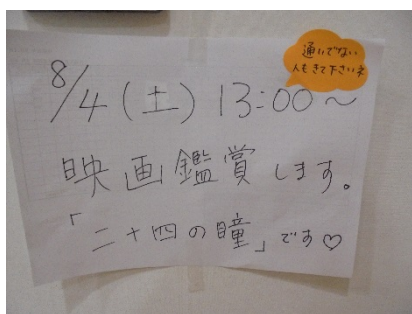 通いでない
人もきて下さいネ
8/4(土)13:00～
映画鑑賞します。
「二十四の瞳」です♡